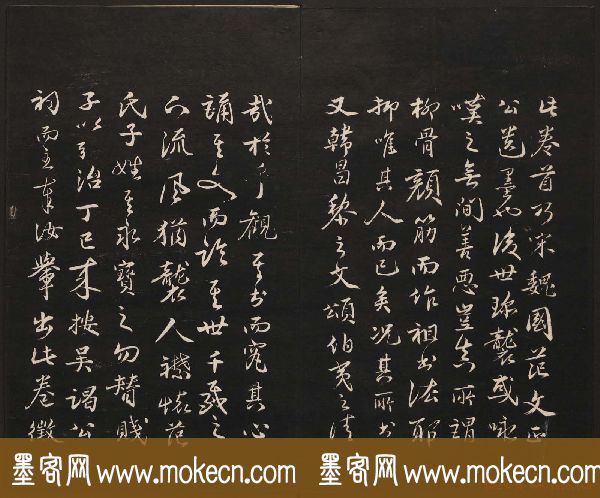 此卷首乃宋魏國范文正
公遺墨也後世珍襲或咏
嘆之無間善惡豈真所謂
柳骨顏筋而怡祖出法耶
抑唯其人而已矣况其所書
又韓昌黎之文頌伯夷之清
哉於乎觀其書而究其心
誦其文而論其世千載之
下流風猶襲人襟懷范
氏子姓其永寶之勿替賤
子以弘治丁巳來按吳謁公
祠而主奉汝輋出此卷徵
墨客网 www.mokecn.com 墨客网 www.mokecn.com